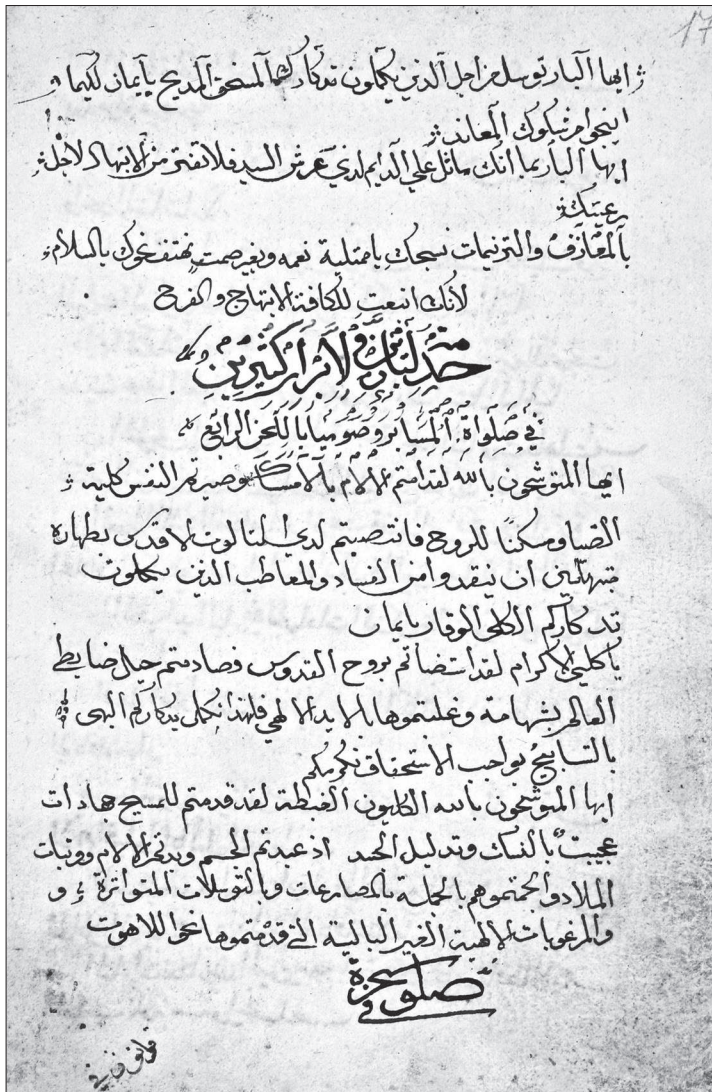 17
ايها البار توسل من اجل الذين يكملون تدكارك المستحق المديح بايمان لكيما
ايها البار بما انك ماثل علي الدايم لدي عرش السيد فلا تفتر من الابتهال لاجل
رعيتك
بالمعازف والترنيمات نسبحك يا ممتلية نعمه وبغير صمت نهتف نحوك بالسلام
لانك انبعت للكافة الابتهاج والفرح
خدمة لابرار كثيرين
في صلواة المسا بروصوميا باللحن الرابع
ايها المتوشحون بالله لقد امتم الالام بالامساك وصيرتم النفس كلية
الضيا ومسكنًا للروح فانتصبتم لدي الثالوت الاقدس بطهارة
مبتهلين ان ينقدوا من الفساد والمعاطب الذين يكملون
تدكاركم الكلي الوقار بايمان
يا كليي الاكرام لقد استضاتم بروح القدوس فصادمتم حيل ضابطي
العالم بشهامة وغلبتموها بالايد الالهي فلهذا نكمل تدكاركم البهي
بالتسابيح بواجب الاستحقاق نكرمكم
ايها المتوشحون بالله الكليون الغبطة لقد قدمتم للمسيح جهادات
عجيبة بالنسك وتدليل الجسد اد عبدتم الجسم الالام ووتبات
الملاد بالحملة بالمصارعات وبالتوسلات المتواترة و
والمرغوبات الالهية الغير البالية التي قدمتموها نحو اللاهوت